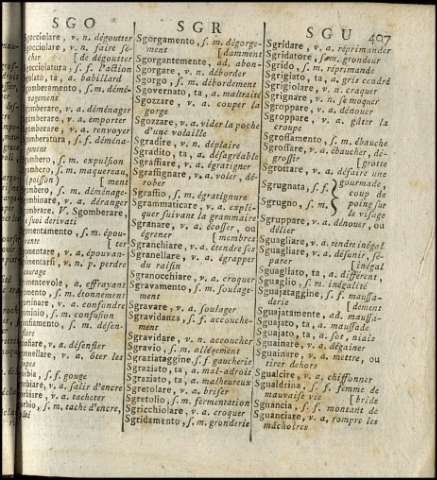 SGO
SGR
SGU
407
Sgocciolare, v. n. dégoutter
sgocciolare, v. n. faire sé-
cher [ de dégoutter
sgocciolatura, s. f. l'action
, ta, a. babillard
sgomberamento, s. m. démé-
nagement
sgomberare, v. a. déménager
sgomberare, v. a. emporter
sgomberare, v. a. renvoyer
sgomberatura, s. f. déména-
gement
sgombero, s. m. expulsion
sgombero, s. m. maquereau,
(poisson) [ ment
sgombero, s. m. déménage-
v. a. déranger
V. Sgomberare,
e suoi derivati
s. m. épou-
vante [ ter
v. a. épouvan-
v. n. p. perdre
courage
a. effrayant
s. m. étonnement
v. a. confondre
s. m. confusion
s. m. désen-
flure
v. a. désenfler
v. a. ôter les
s. f. gouge
v. a. salir d'encre
v. a. tacheter
s. m. tache d'encre,
Sgorgamento, s. m. dégorge-
ment [ damment
Sgorgantemente, ad. abon-
Sgorgare, v. n. déborder
Sgorgo, s. m. débordement
Sgovernato, ta, a. maltraité
Sgozzare, v. a. couper la
gorge
Sgozzare, v. a. vider la poche
d'une volaille
Sgradire, v. n. déplaire
Sgradito, ta, a. désagréable
Sgraffiare, v. a. égratigner
Sgraffignare, v. a. voler, dé-
rober
Sgraffio, s. m. égratignure
Sgrammaticare, v. a. expli-
quer suivant la grammaire
Sgranare, v. a. écosser, ou
égrener [ membres
Sgranchiare, v. a. étendre ses
Sgranellare, v. a. égrapper
du raisin
Sgranocchiare, v. a. croquer
Sgravamento, s. m. soulage-
ment
Sgravare, v. a. soulager
Sgravidanza, s. f. accouche-
ment
Sgravidare, v. n. accoucher
Sgravio, s. m. allégement
Sgraziataggine s. f. gaucherie
Sgraziato, ta, a. mal-adroit
Sgraziato, ta, a. malheureux
Sgretolare, v. a. briser
Sgretolio, s. m. fermentation
Sgricchiolare, v. a. croquer
Sgridamento, s. m. gronderie
Sgridare, v. a. réprimander
Sgridatore, s. m. grondeur
Sgrido, s. m. réprimande
Sgrigiato, ta, a. gris cendré
Sgrigiolare, v. n. craquer
Sgrignare, v. n. se moquer
Sgroppare, v. a. dénouer
Sgroppare, v. a. gâter la
croupe
Sgrossamento, s. m. ébauche
Sgrossare, v. a. ébaucher, dé-
grossir [ grotte
Sgrottare, v. a. défaire une
Sgrugnata, s. f. } gourmade,
coup de
Sgrugno, s. m. } poing sur
la visage
Sgruppare, v. a. dénouer, ou
délier
Sguagliare, v. a. rendre inégal
Sguagliare, v. a. désunir, sé-
parer [ inégal
Sguagliato, ta, a. différent,
Sguaglio, s. m. inégalité
Sguajataggine, s. f. maussa-
derie [ dement
Sguajatamente, ad. maussa-
Sguajato, ta, a. maussade
Sguajato, ta, a. sot, niais
Sguainare, v. a. dégainer
Sguainare, v. a. mettre, ou
tirer dehors
Sgualcire, v. a. chiffonner
Sgualdrina, s. f. femme de
mauvaise vie [ bride
Sguancia, s. f. montant de
Sguanciare, v. a. rompre les
mâchoires